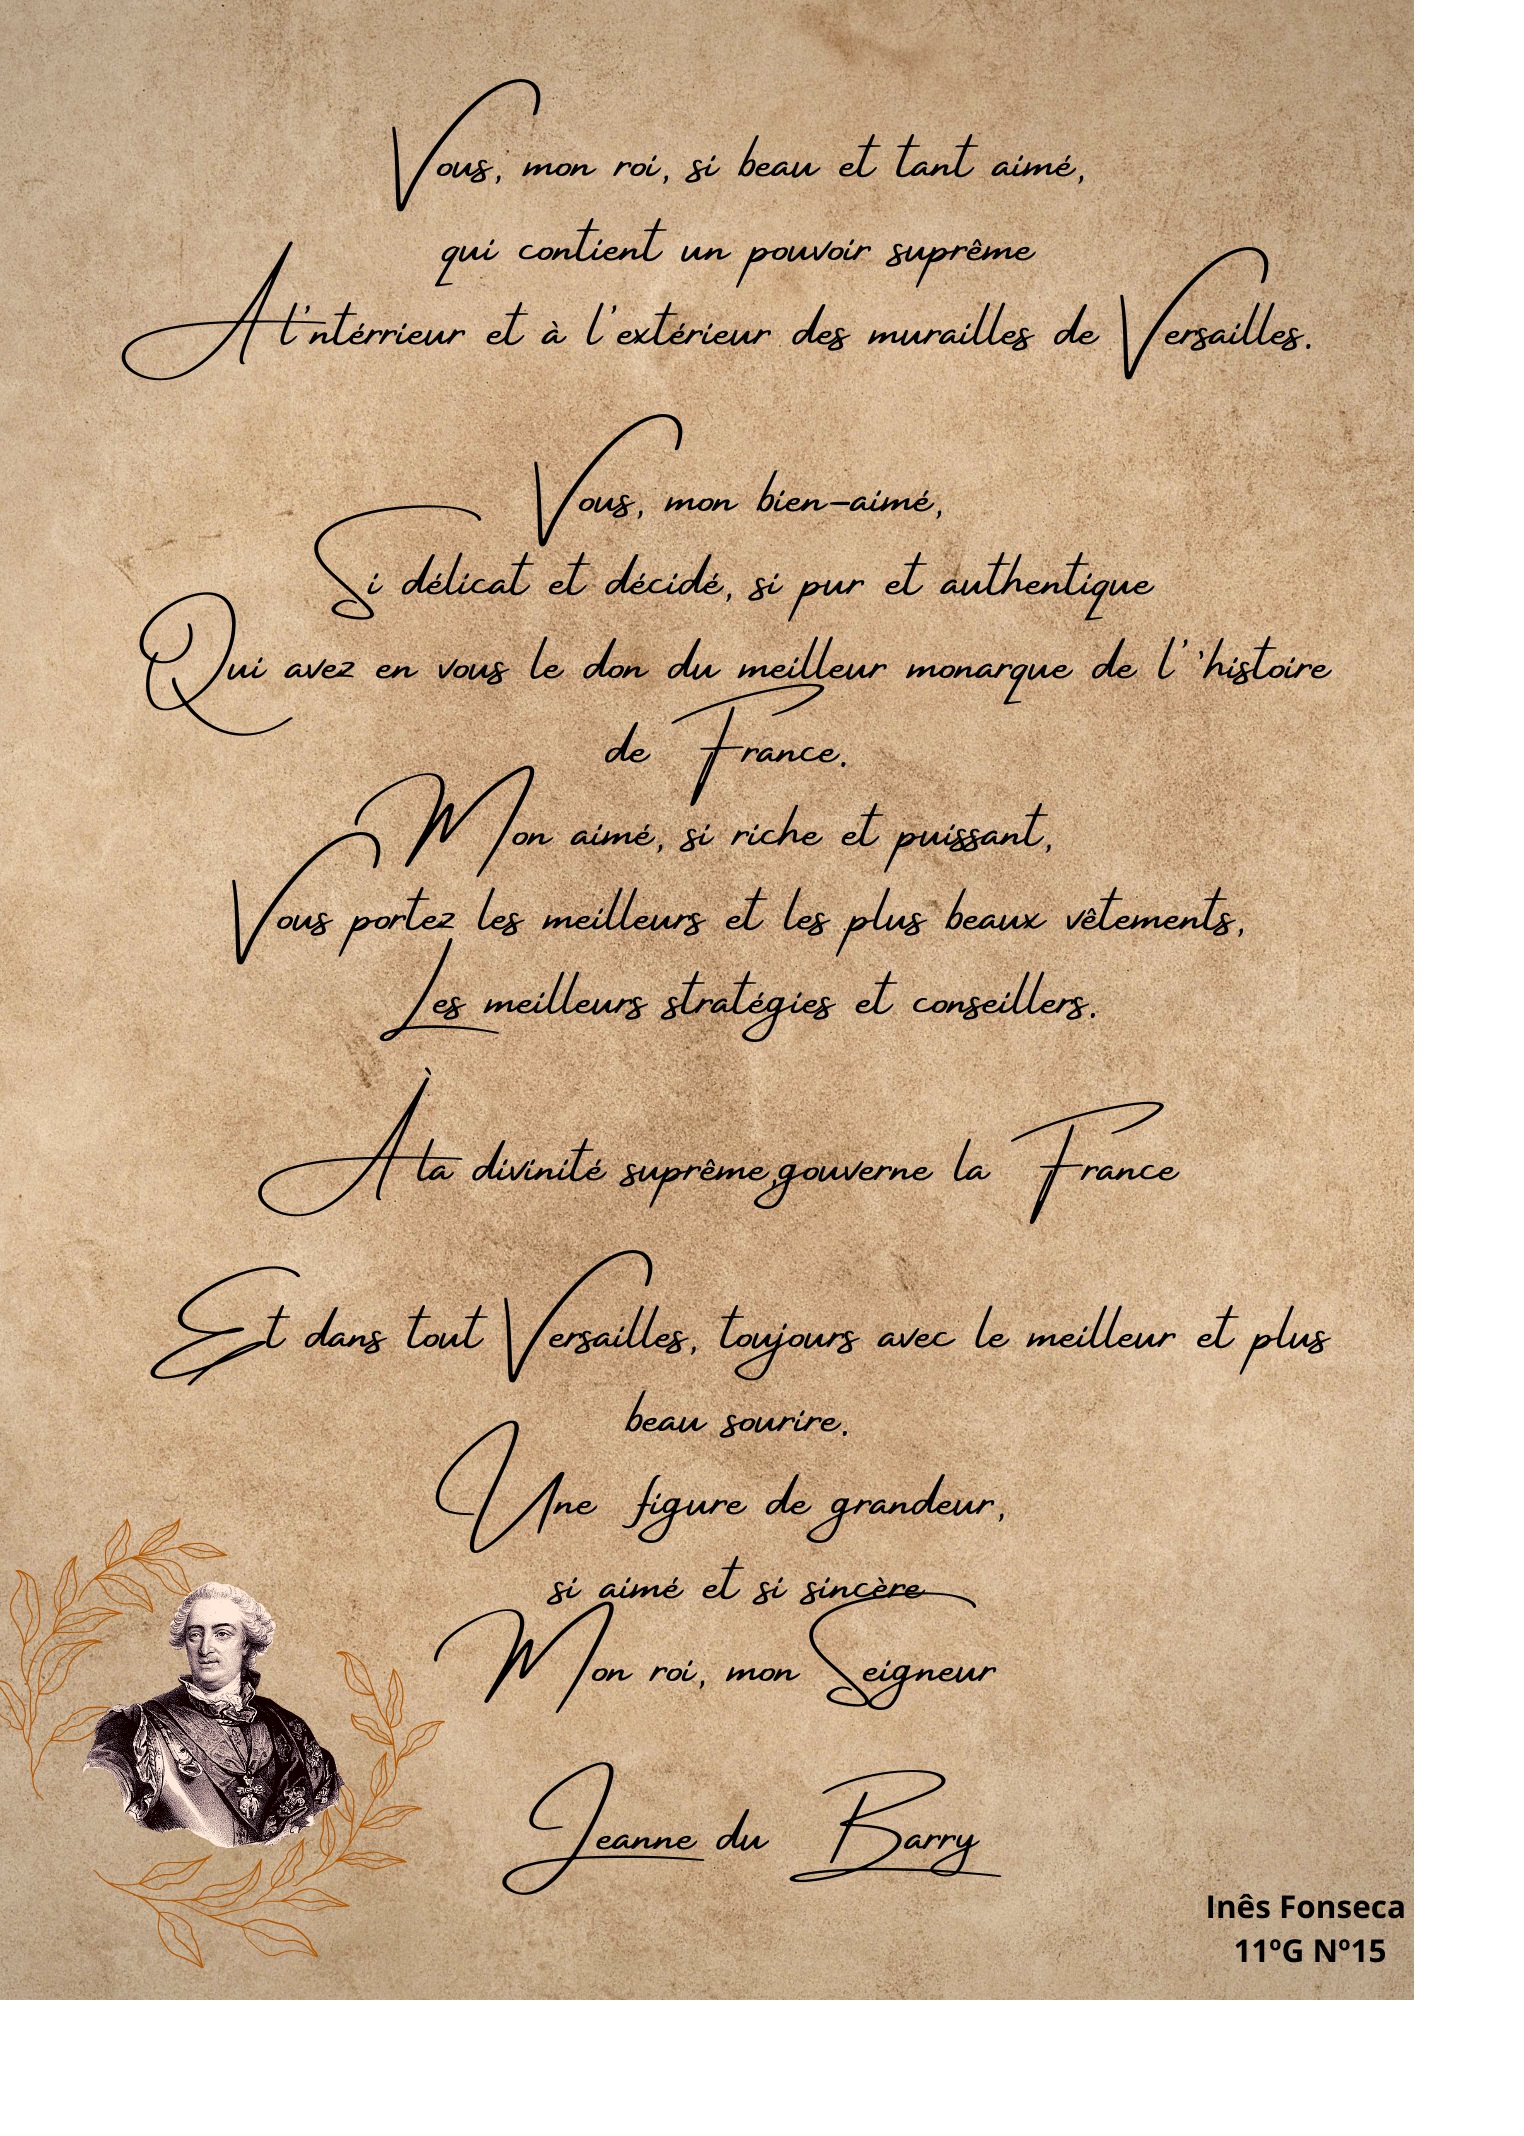 Vous, mon roi, si beau et tant aimé,
qui contient un pouvoir suprême
A l'ntérrieur et à l'extérieur des murailles de Versailles.
Vous, mon bien-aimé,
Si délicat et décidé, si pur et authentique
Qui avez en vous le don du meilleur monarque de l' 'histoire
de France.
Mon aimé, si riche et puissant,
Vous portez les meilleurs et les plus beaux vêtements,
Les meilleurs stratégies et conseillers.
À la divinité suprême,gouverne la France
Et dans tout Versailles, toujours avec le meilleur et plus
beau sourire.
Une figure de grandeur,
si aimé et si sincère
Mon roi, mon Seigneur
Jeanne du Barry
Inês Fonseca
11ºG Nº15